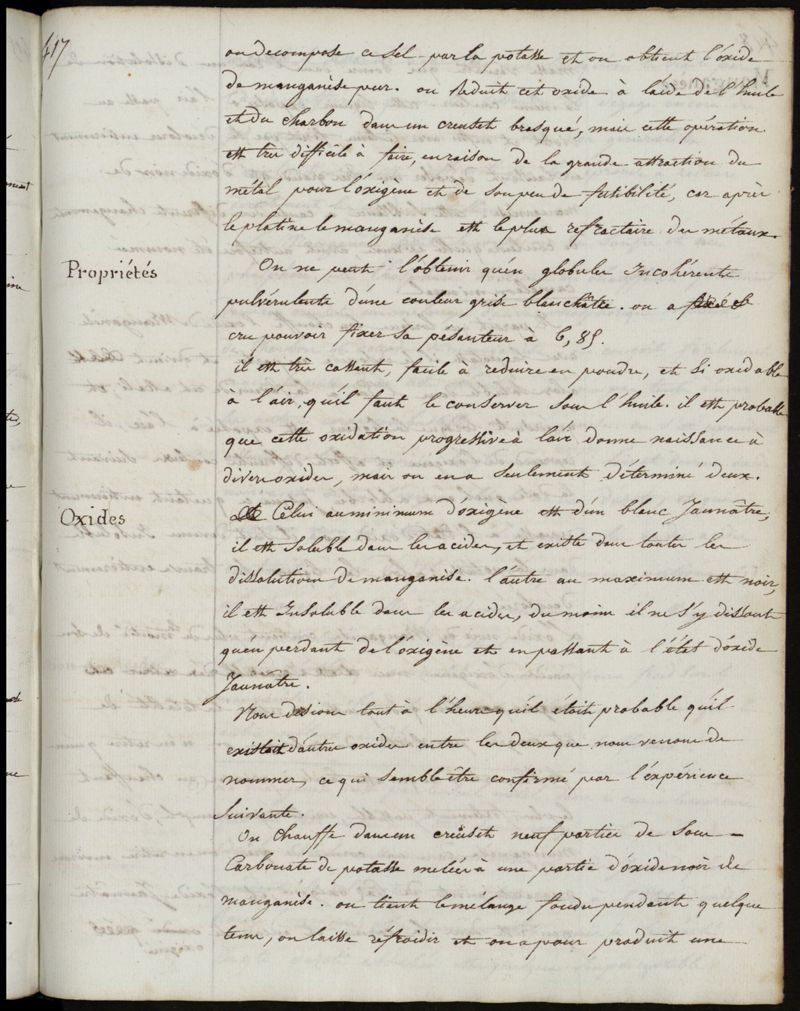 417
on decompose ce sel par la potasse et on obtient l'oxide
de manganèse pur. on réduit cet oxide à l'aide de l'huile
et du charbon dans un creuset brasqué, mais cette opération
est très difficile à faire, en raison de la grande attraction du
métal pour l'oxigène et de son peu de fusibilité, car après
le platine le manganèse est le plus refractaire des métaux.
Propriétés
On ne peut l'obtenir qu'en globules Incohérents
pulvérulents d'une couleur grise blanchâtre. on a
cru pouvoir fixer sa pésanteur à 6,85.
il est très cassant, facile à réduire en poudre, et si oxidable
à l'air, qu'il faut le conserver sous l'huile. il est probable
que cette oxidation progressive à l'air donne naissance à
divers oxides, mais on en a seulement déterminé deux.
Oxides
Celui au minimum d'oxigène est d'un blanc Jaunâtre,
il est soluble dans les acides, et existe dans toutes les
dissolutions de manganèse. l'autre au maximum est noir,
il est Insoluble dans les acides, du moins il ne s'y dissout
qu'en perdant de l'oxigène et en passant à l'état d'oxide
Jaunâtre.
Nous disions tout à l'heure qu'il étoit probable qu'il
existoit d'autres oxides entre les deux que nous venons de
nommer, ce qui semble être confirmé par l'expérience
suivante.
On chauffe dans un creuset neuf parties de sous-
Carbonate de potasse melées à une partie d'oxide noir de
manganèse. on tient le mélange fondu pendant quelque
tems, on laisse réfroidir et on a pour produit une